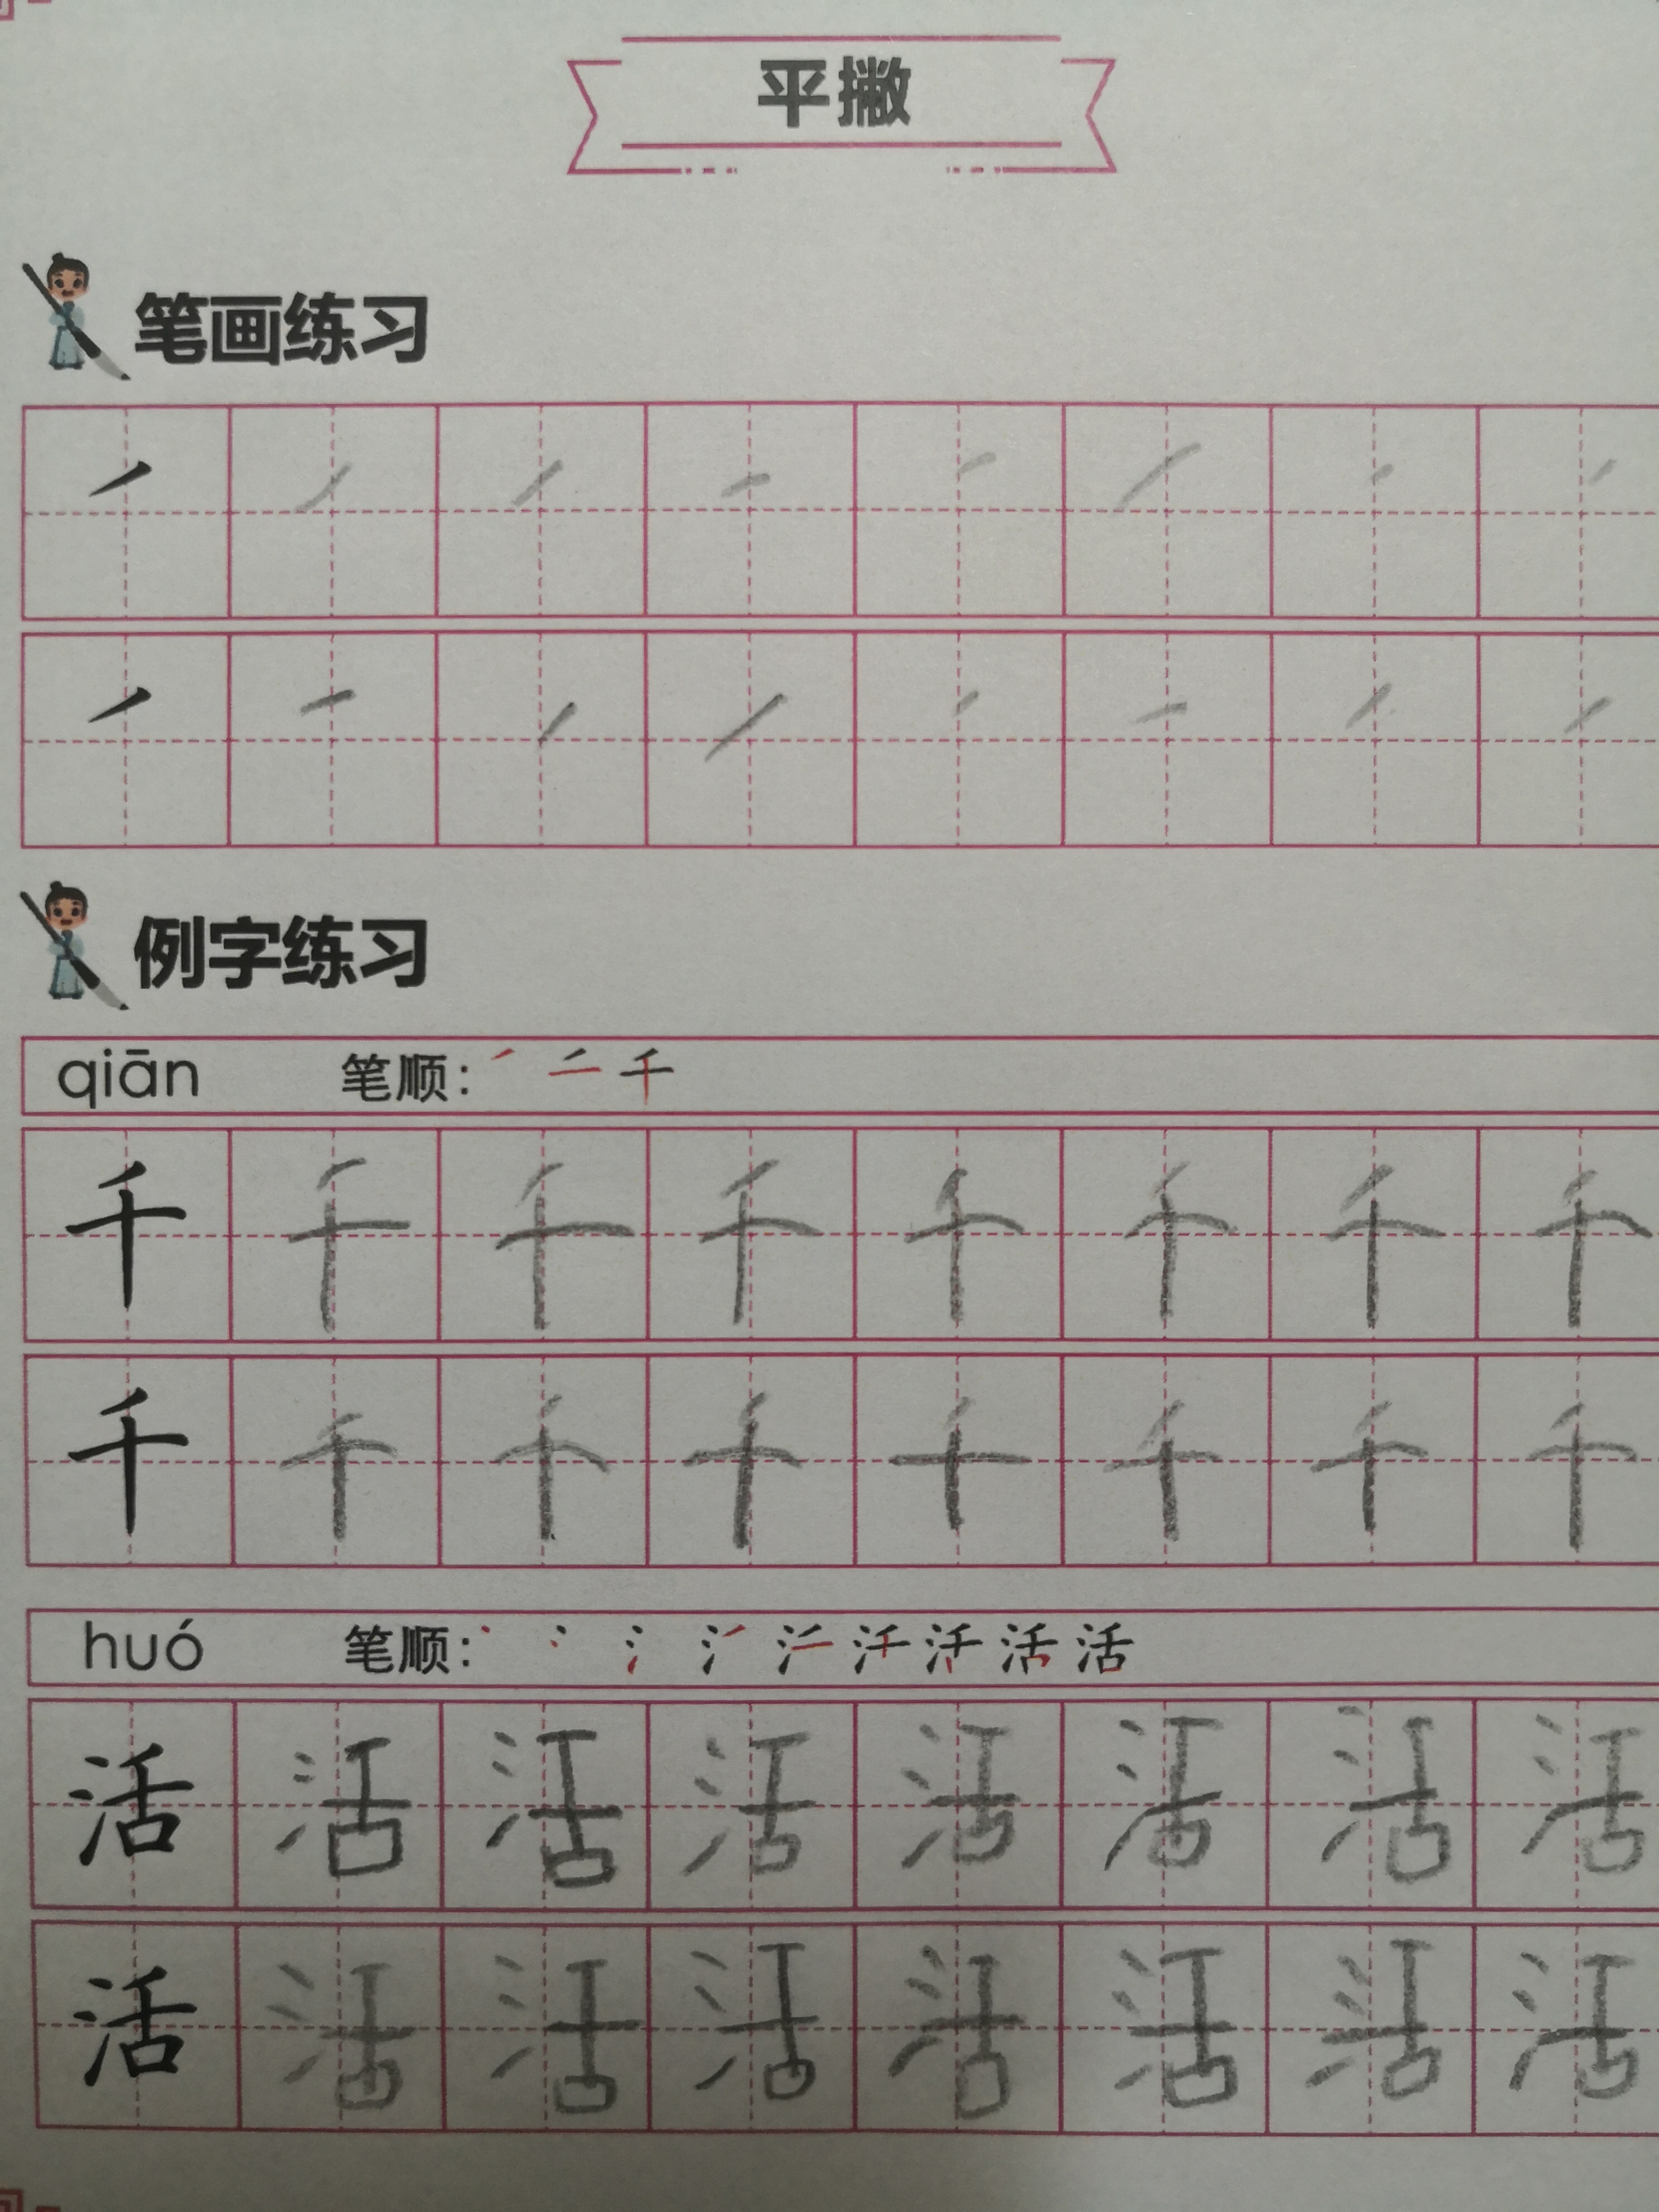 平撇
笔画练习
㇒ ㇒ ㇒ ㇒ ㇒ ㇒ ㇒ ㇒
㇒ ㇒ ㇒ ㇒ ㇒ ㇒ ㇒ ㇒
例字练习
qiān 笔顺: ㇒ 二 千
千 千 千 千 千 千 千 千
千 千 千 千 千 千 千 千
huó 笔顺: 活
活 活 活 活 活 活 活 活
活 活 活 活 活 活 活 活